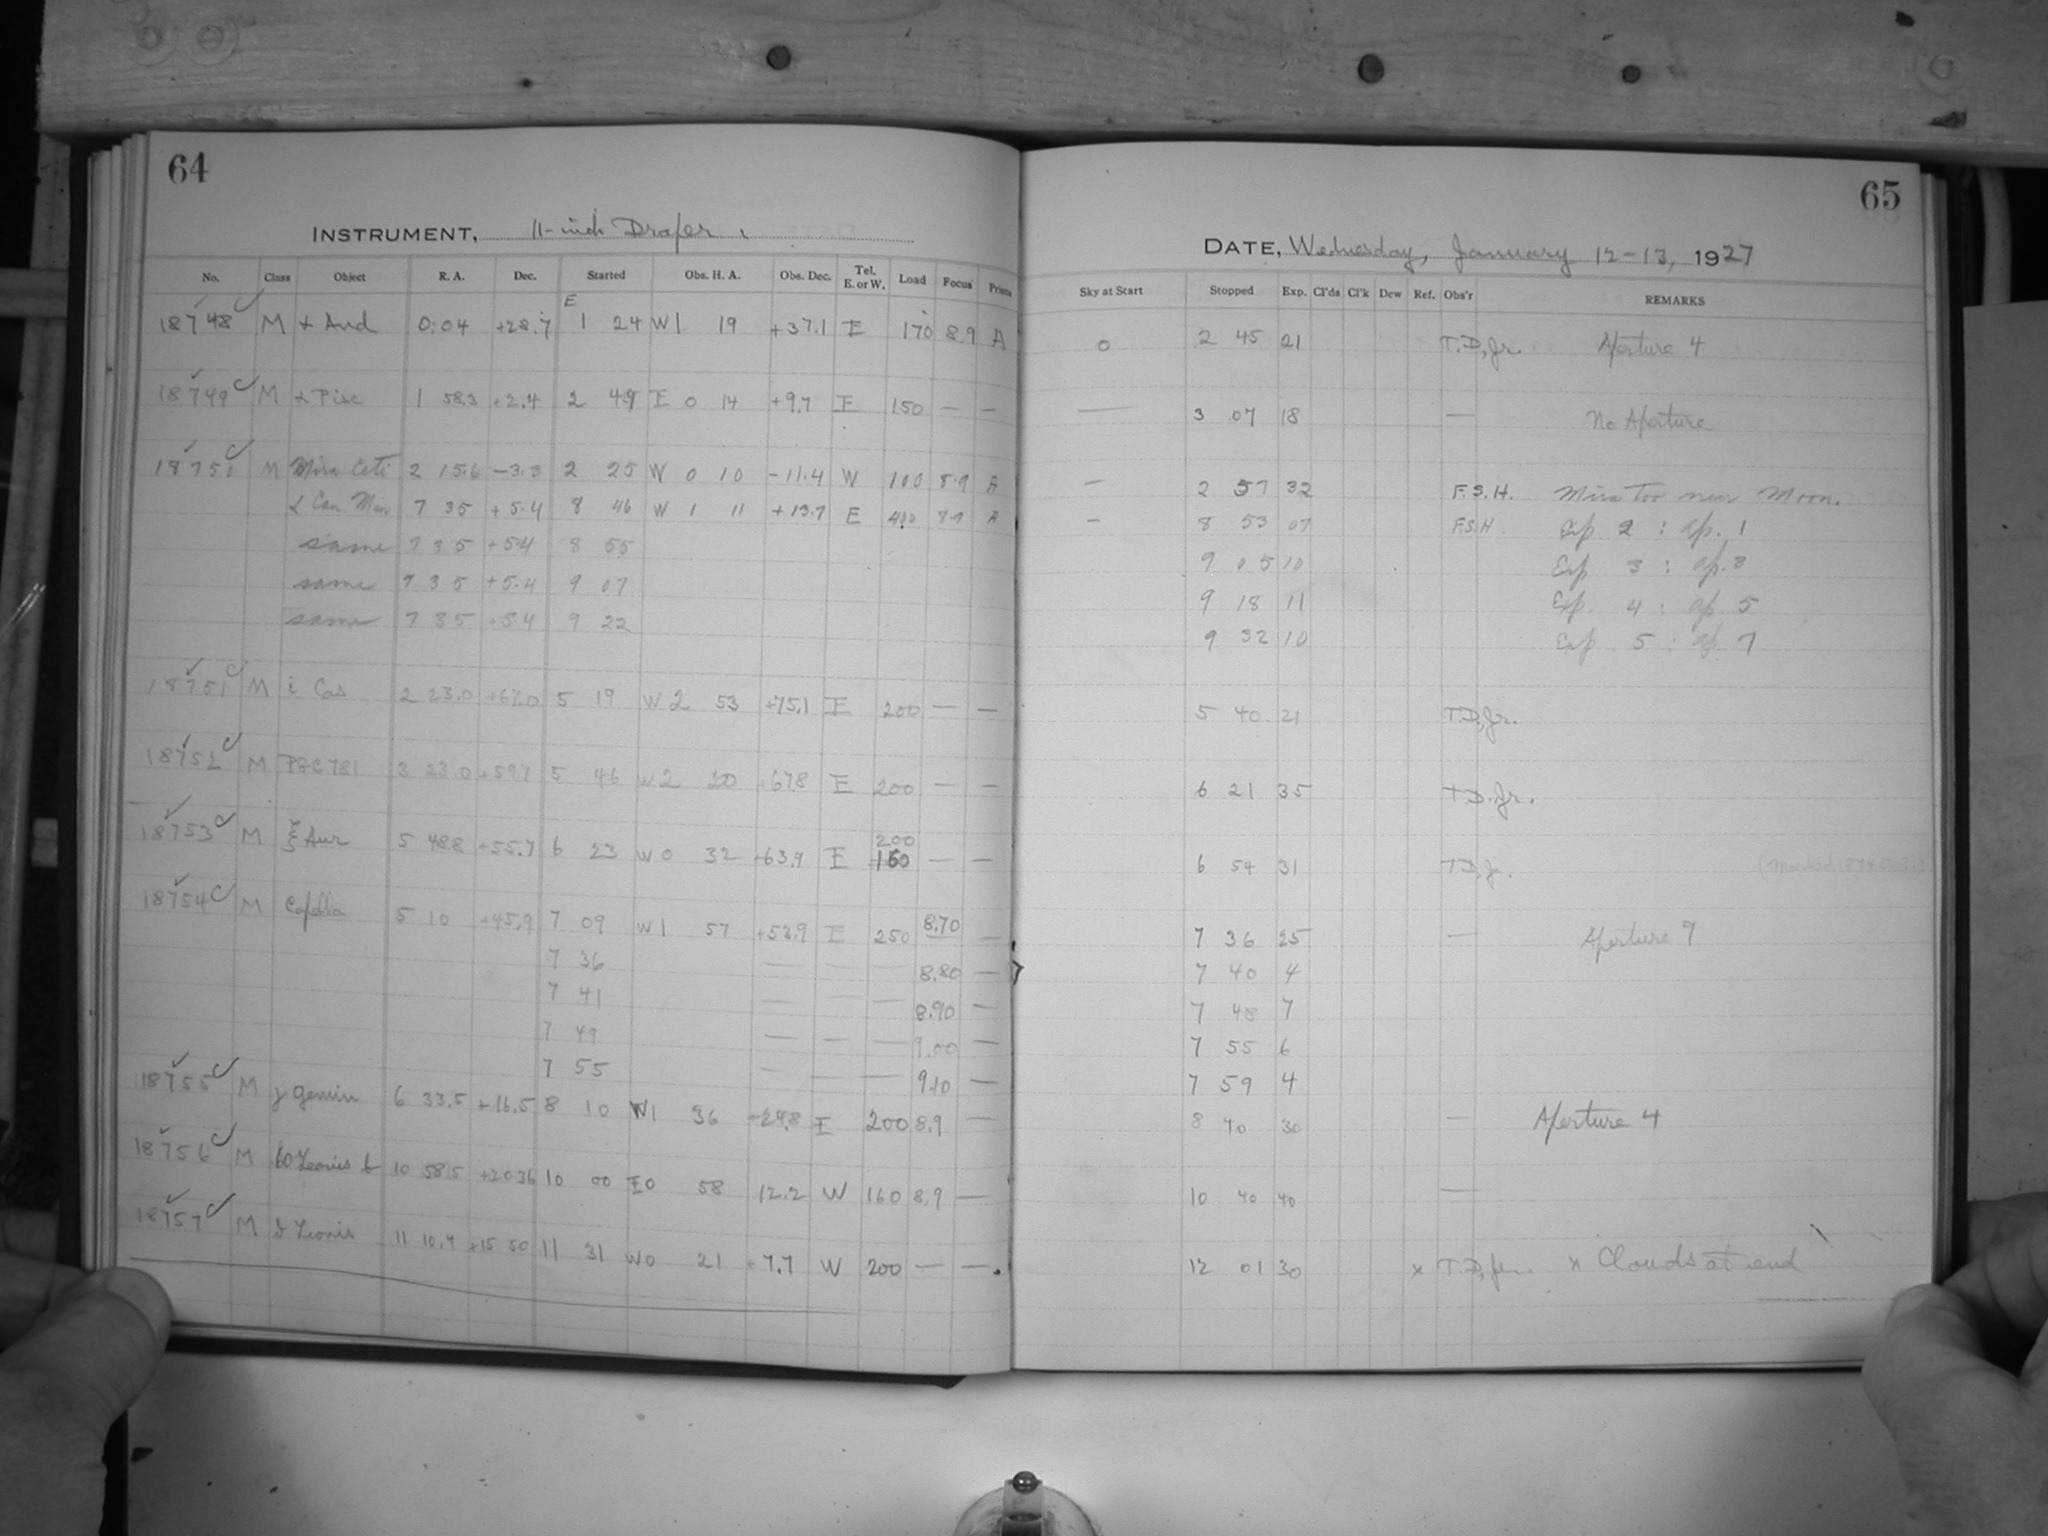 64
INSTRUMENT, 11-inch Draper
No. Class Object R. A. Dec. Started Obs. H. A. Obs. Dec. Tel. E. or W. Load Focus Prisms
E
18748 M α And 0:04 +28.7 1 24 W 1 19 +37.1 E 170 8.9 A
18749 M α Pisc 1 58.3 +2.4 2 49 E 0 14 +9.7 E 150 — —
18750 M Mira Ceti 2 15.6 -3.3 2 25 W 0 10 -11.4 W 100 8.9 A
α Can Min 7 35 +5.4 8 46 W 1 11 +13.7 E 400 8.9 A
same 7 35 +5.4 8 55
same 7 35 +5.4 9 07
same 7 35 +5.4 9 22
18751 M i Cas 2 23.0 +67.0 5 19 W 2 53 +75.1 E 200 — —
18752 M 3 23.0 +59.7 5 46 W 2 20 +67.8 E 200 — —
18753 M ξ Aur 5 48.8 +55.7 6 23 W 0 32 +63.9 E 200 — —
18754 M Capella 5 10 +45.9 7 09 W 1 57 +53.9 E 250 8.70 —
7 36 — — — 8.80 —
7 41 — — — 8.90 —
7 49 — — — 9.00 —
7 55 — — — 9.10 —
18755 M γ Gemin 6 33.5 +16.5 8 10 W 1 36 +24.8 E 200 8.9 —
18756 M 60 Leonis b 10 58.5 +20 36 10 00 E 0 58 12.2 W 160 8.9 —
18757 M Leonis 11 10.4 +15 50 11 31 W 0 21 +7.7 W 200 — —
65
DATE, Wednesday, January 12-13, 1927
Sky at Start Stopped Exp. Cl'ds Cl'k Dew Ref. Obs'r REMARKS
0 2 45 21 T.D, Jr. Aperture 4
— 3 07 18 — No Aperture
— 2 57 32 F.S.H. Mira too near Moon.
— 8 53 07 F.S.H. Exp 2 : ap. 1
9 05 10 Exp 3 : ap. 3
9 18 11 Exp. 4 : ap 5
9 32 10 Exp 5 : ap. 7
5 40 21 T.D, Jr.
6 21 35 T.D. Jr.
6 54 31 T.D, Jr.
7 36 25 — Aperture 9
7 40 4
7 48 7
7 55 6
7 59 4
8 40 30 — Aperture 4
10 40 40 —
12 01 30 x T.D, Jr. x Clouds at end